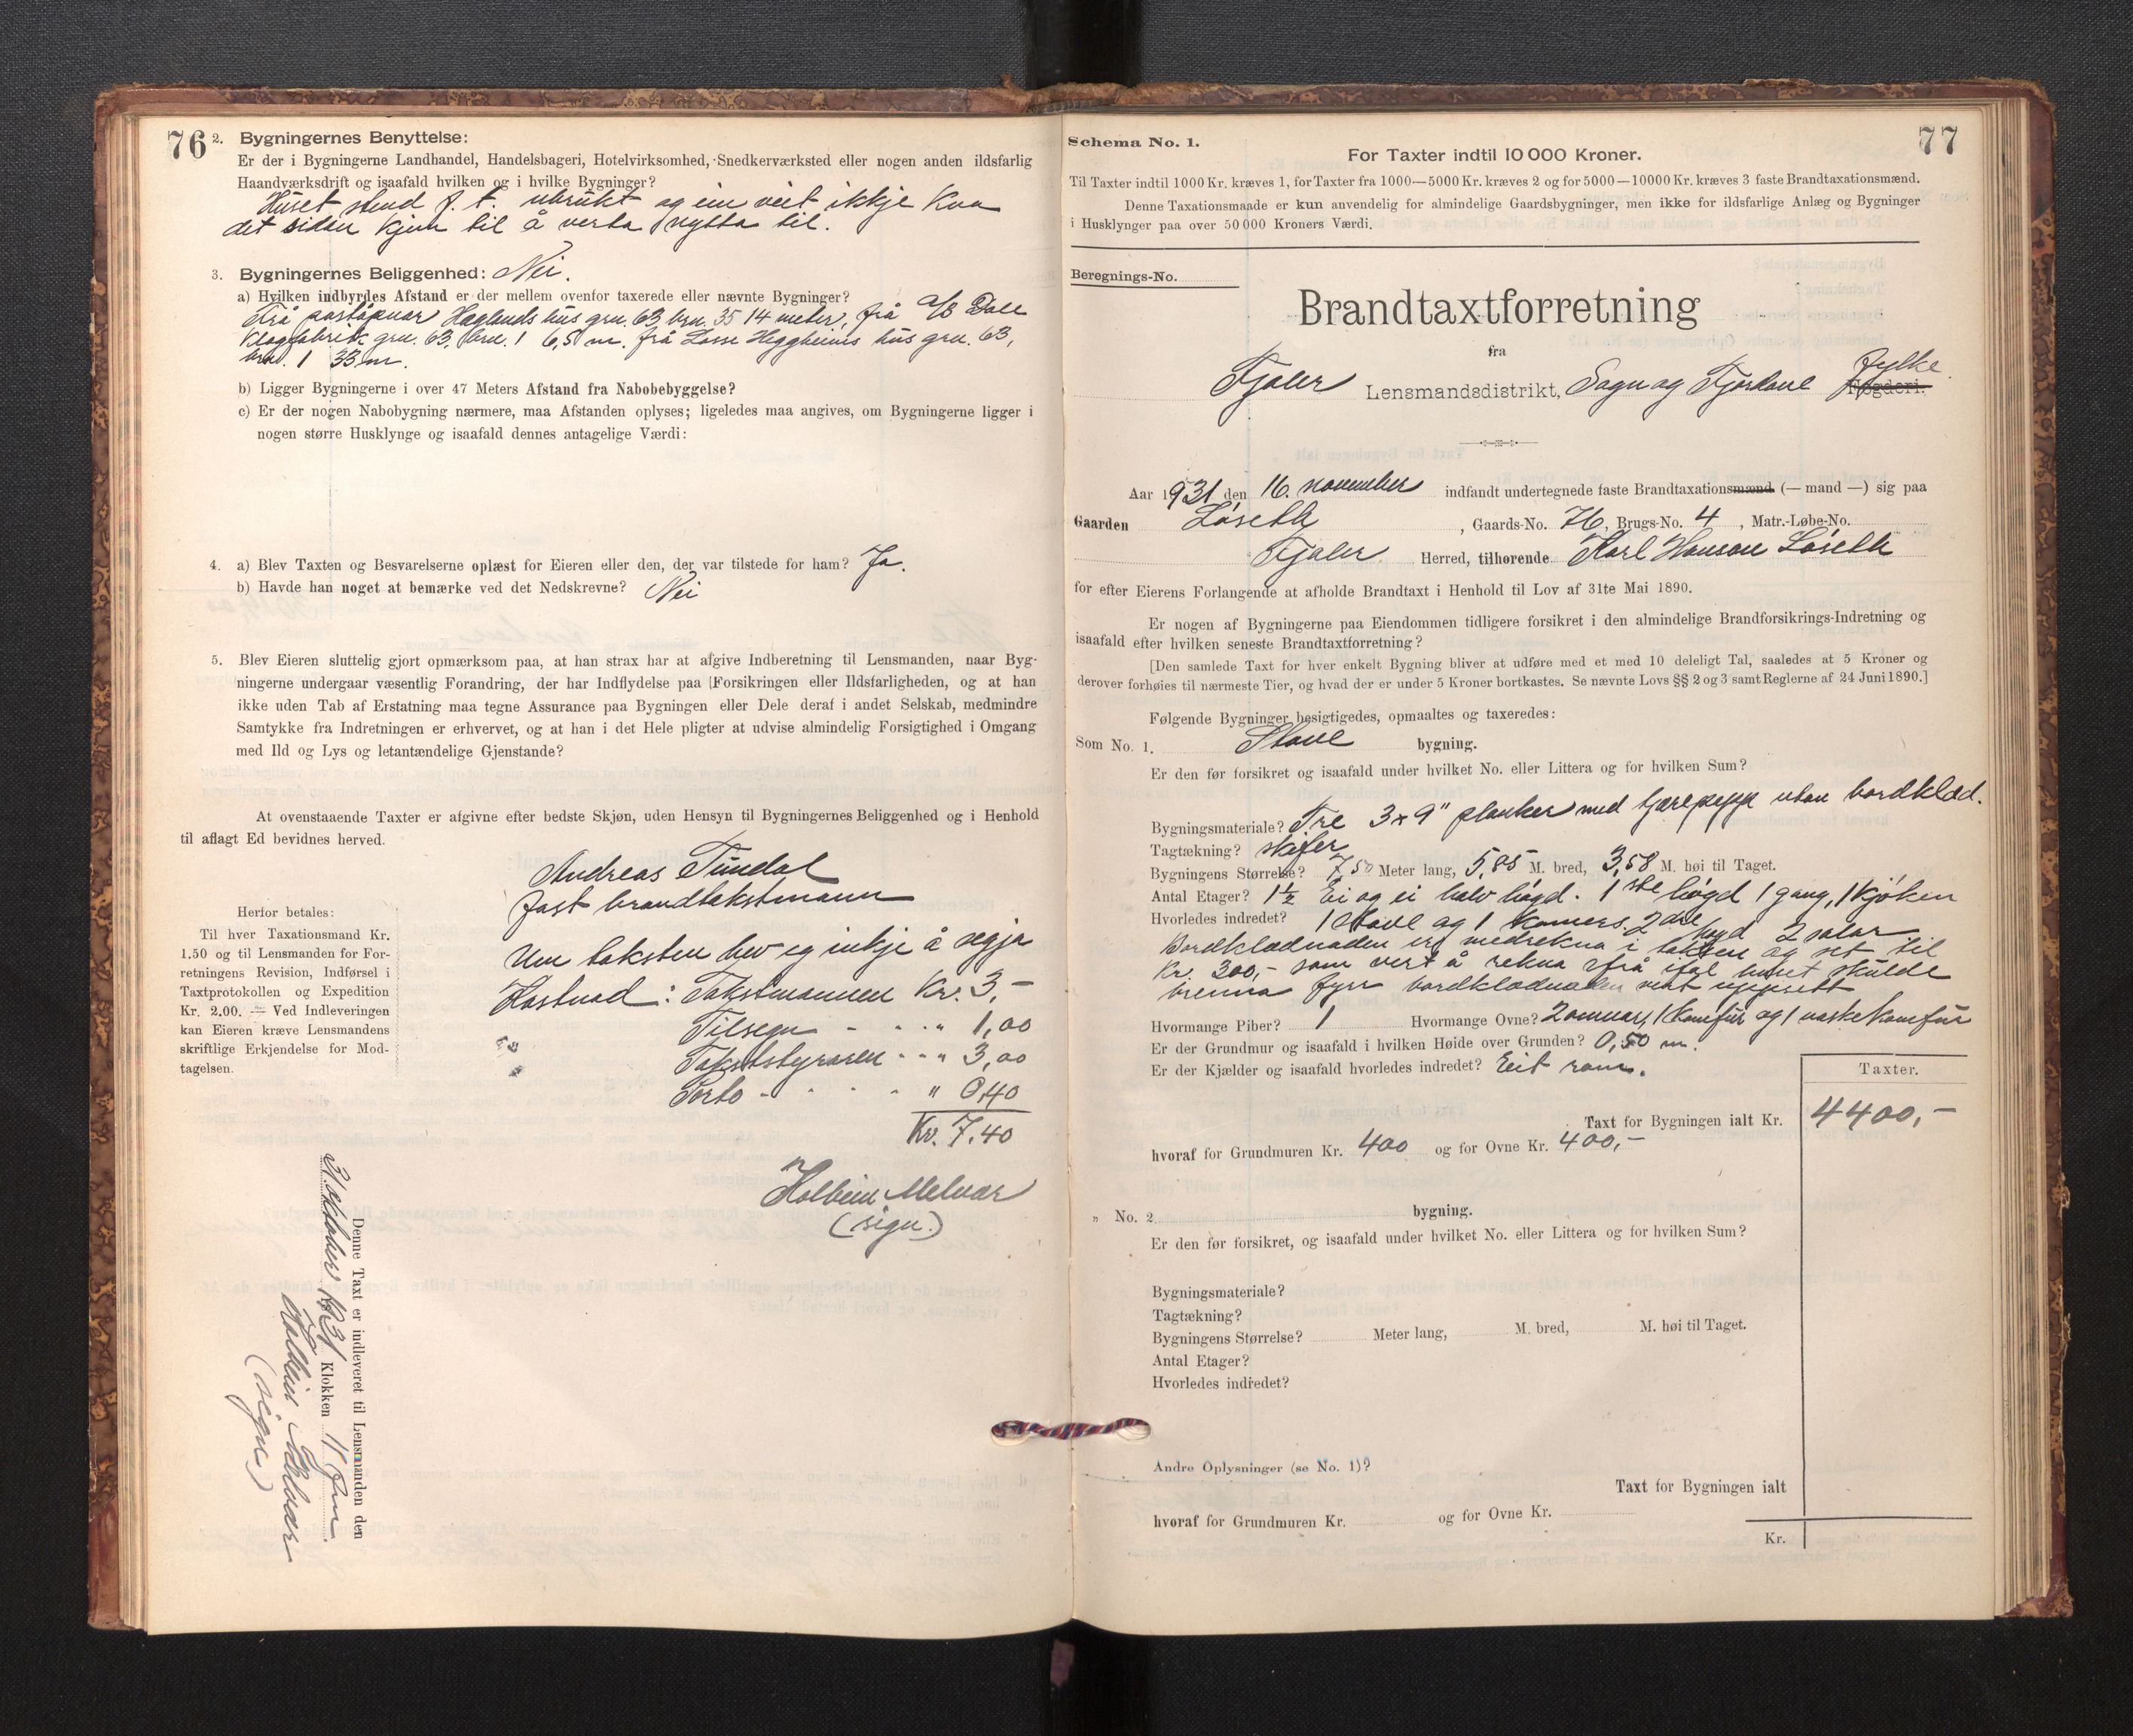 76
2. Bygningernes Benyttelse:
Er der i Bygningerne Landhandel, Handelsbageri, Hotelvirksomhed, Snedkerværksted eller nogen anden ildsfarlig
Haandværksdrift og isaafald hvilken og i hvilke Bygninger?
Huset stend f. t. ubrukt og ein veit ikkje kva
det sidan kjem til å verta nytta til.
3. Bygningernes Beliggenhed: Nei.
a) Hvilken indbyrdes Afstand er der mellem ovenfor taxerede eller nævnte Bygninger?
Frå postopnar Hæglands hus gnr. 63 brn. 35 14 meter, frå A/S Dale
gnr. 63, brn. 1 6,5 m. frå Lasse Heggheims hus gnr. 63,
brn. 1 33 m.
b) Ligger Bygningerne i over 47 Meters Afstand fra Nabobebyggelse?
c) Er der nogen Nabobygning nærmere, maa Afstanden oplyses; ligeledes maa angives, om Bygningerne ligger i
nogen større Husklynge og isaafald dennes antagelige Værdi:
4. a) Blev Taxten og Besvarelserne oplæst for Eieren eller den, der var tilstede for ham? Ja.
b) Havde han noget at bemærke ved det Nedskrevne? Nei
5. Blev Eieren sluttelig gjort opmærksom paa, at han strax har at afgive Indberetning til Lensmanden, naar Byg-
ningerne undergaar væsentlig Forandring, der har Indflydelse paa Forsikringen eller Ildsfarligheden, og at han
ikke uden Tab af Erstatning maa tegne Assurance paa Bygningen eller Dele deraf i andet Selskab, medmindre
Samtykke fra Indretningen er erhvervet, og at han i det Hele pligter at udvise almindelig Forsigtighed i Omgang
med Ild og Lys og letantændelige Gjenstande?
At ovenstaaende Taxter er afgivne efter bedste Skjøn, uden Hensyn til Bygningernes Beliggenhed og i Henhold
til aflagt Ed bevidnes herved.
Andreas Tundal
fast brandtakstmann
Herfor betales:
Til hver Taxationsmand Kr.
1.50 og til Lensmanden for For-
retningens Revision, Indførsel i
Taxtprotokollen og Expedition
Kr. 2.00. — Ved Indleveringen
kan Eieren kræve Lensmandens
skriftlige Erkjendelse for Mod-
tagelsen.
Um taksten hev eg inkje å segja
Kostnad: Takstmannen Kr. 3,-
Tilsegn - - - " 1,00
Takststyraren - - " 3,00
Porto - - - - " 0,40
Kr. 7.40
Halbein Melvær
(sign.)
Denne Taxt er indleveret til Lensmanden den
31. oktober 1931 Klokken 11 fm
Halbein Melvær
(sign)
77
Schema No. 1.
For Taxter indtil 10 000 Kroner.
Til Taxter indtil 1000 Kr. kræves 1, for Taxter fra 1000—5000 Kr. kræves 2 og for 5000—10000 Kr. kræves 3 faste Brandtaxationsmænd.
Denne Taxationsmaade er kun anvendelig for almindelige Gaardsbygninger, men ikke for ildsfarlige Anlæg og Bygninger
i Husklynger paa over 50 000 Kroners Værdi.
Beregnings-No.
Brandtaxtforretning
fra
Fjaler Lensmandsdistrikt, Sogn og Fjordane Fogderi. fylke.
Aar 1931 den 16. november indfandt undertegnede faste Brandtaxationsmænd (— mand —) sig paa
Gaarden Løseth, Gaards-No. 76, Brugs-No. 4, Matr.-Løbe-No.
Fjaler Herred, tilhørende Karl Hanson Løseth
for efter Eierens Forlangende at afholde Brandtaxt i Henhold til Lov af 31te Mai 1890.
Er nogen af Bygningerne paa Eiendommen tidligere forsikret i den almindelige Brandforsikrings-Indretning og
isaafald efter hvilken seneste Brandtaxtforretning?
[Den samlede Taxt for hver enkelt Bygning bliver at udføre med et med 10 deleligt Tal, saaledes at 5 Kroner og
derover forhøies til nærmeste Tier, og hvad der er under 5 Kroner bortkastes. Se nævnte Lovs §§ 2 og 3 samt Reglerne af 24 Juni 1890.]
Følgende Bygninger besigtigedes, opmaaltes og taxeredes:
Som No. 1. Stove bygning.
Er den før forsikret og isaafald under hvilket No. eller Littera og for hvilken Sum?
Bygningsmateriale? Tre 3x9" planker med tjærepapp utan bordklæd.
Tagtækning? skifer
Bygningens Størrelse? 7,50 Meter lang, 5,85 M. bred, 3,58 M. høi til Taget.
Antal Etager? 1½ Ei og ei halv høgd. 1ste høgd 1 gang, 1 kjøken
Hvorledes indredet? 1 stove og 1 kamers, 2dre høgd 2 salar
Bordklædnaden er medrekna i taksten og set til
Kr. 300,- som vert å rekna ifrå ifal huset skulde
brenna fyrr bordklædnaden vert uppsett
Hvormange Piber? 1 Hvormange Ovne? 2 omnar, 1 komfur og 1 vaskekomfur
Er der Grundmur og isaafald i hvilken Høide over Grunden? 0,50 m.
Er der Kjælder og isaafald hvorledes indredet? Eit rom.
Taxter.
Taxt for Bygningen ialt Kr. 4400,-
hvoraf for Grundmuren Kr. 400 og for Ovne Kr. 400,-
„ No. 2 bygning.
Er den før forsikret, og isaafald under hvilket No. eller Littera og for hvilken Sum?
Bygningsmateriale?
Tagtækning?
Bygningens Størrelse? Meter lang, M. bred, M. høi til Taget.
Antal Etager?
Hvorledes indredet?
Andre Oplysninger (se No. 1)?
Taxt for Bygningen ialt
hvoraf for Grundmuren Kr. og for Ovne Kr.
Kr.